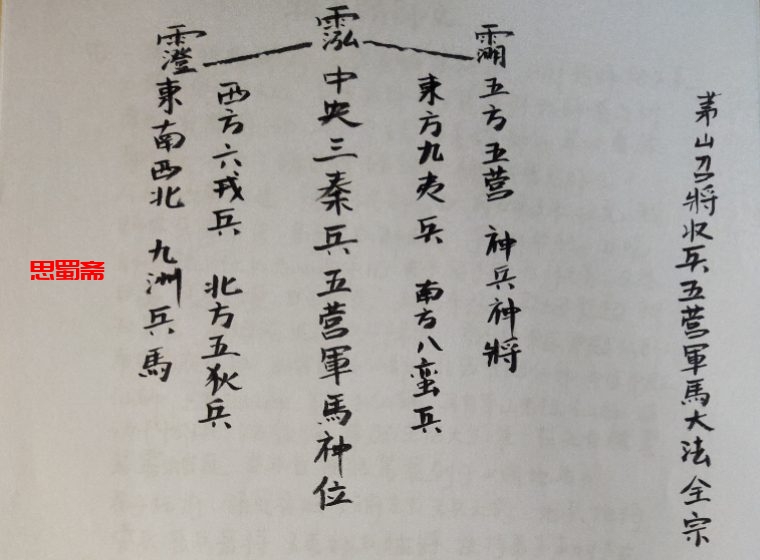 茅山召將收兵五营軍馬大法全宗
五方五营 神兵神將
東方九夷兵 南方八蛮兵
中央三秦兵五营軍馬神位
西方六戎兵 北方五狄兵
東南西北 九洲兵馬
思蜀斋